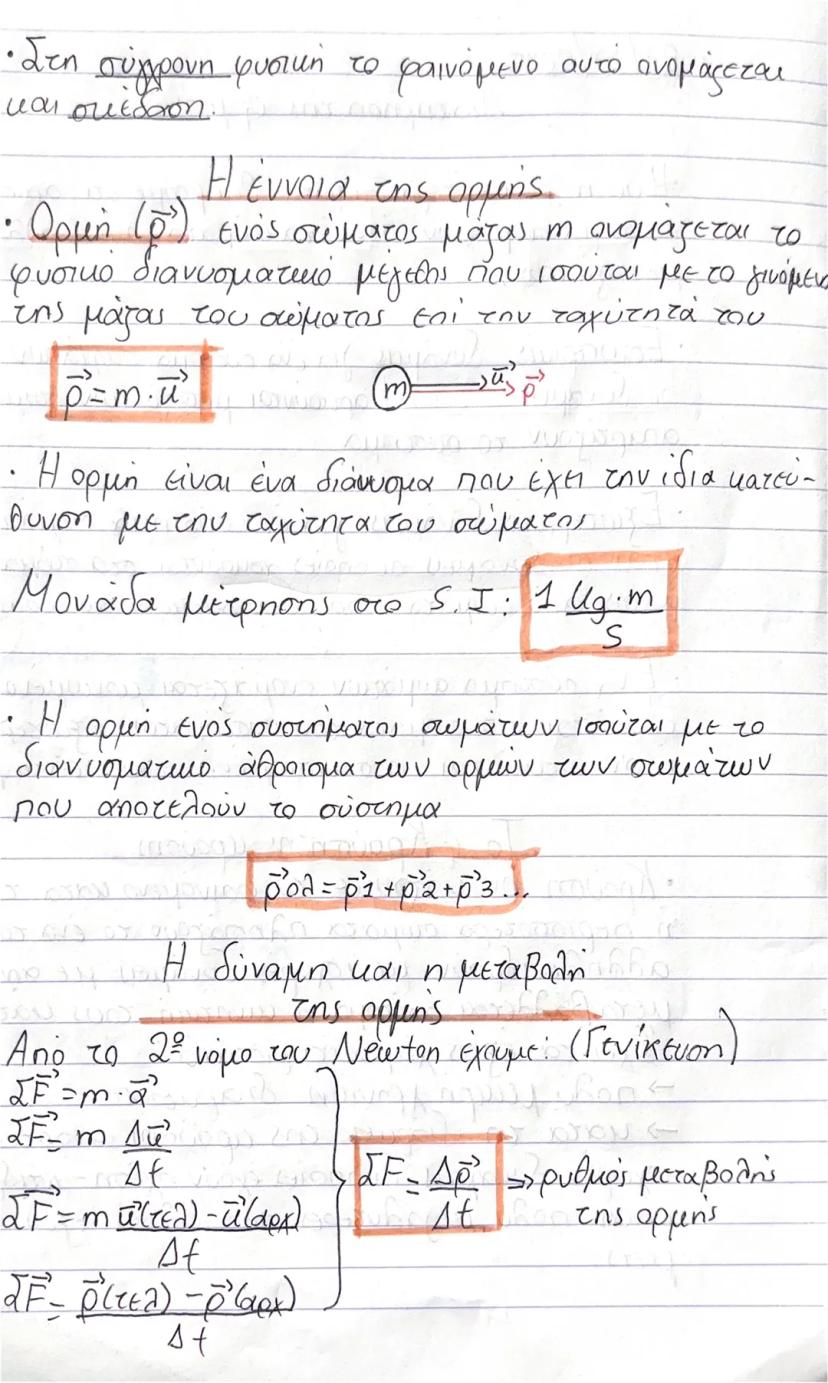 · Στη σύγχρονη φυσική το φαινόμενο αυτό ονομάζεται
και σκέδαση.
Η έννοια της ορμής
· Ορμή (p⃗) ενός σώματος μάζας m ονομάζεται το
φυσικό διανυσματικό μέγεθος που ισούται με το γινόμεν
της μάζας του σώματος επί την ταχύτητά του
p⃗ = m · u⃗
m u⃗ p⃗
· Η ορμή είναι ένα διάνυσμα που έχει την ίδια κατεύ-
θυνση με την ταχύτητα του σώματος
Μονάδα μέτρησης στο S.I: 1 Kg·m/s
· Η ορμή ενός συστήματος σωμάτων ισούται με το
διανυσματικό άθροισμα των ορμών των σωμάτων
που αποτελούν το σύστημα
p⃗ολ = p⃗1 + p⃗2 + p⃗3 ...
Η δύναμη και η μεταβολή
της ορμής
Από το 2º νόμο του Newton έχουμε: (Γενίκευση)
ΣF⃗ = m · a⃗
ΣF⃗ = m Δu⃗/Δt
ΣF⃗ = m u⃗(τελ) - u⃗(αρχ)/Δt
ΣF⃗ = p⃗(τελ) - p⃗(αρχ)/Δt
ΣF = Δp⃗/Δt => ρυθμός μεταβολής
της ορμής